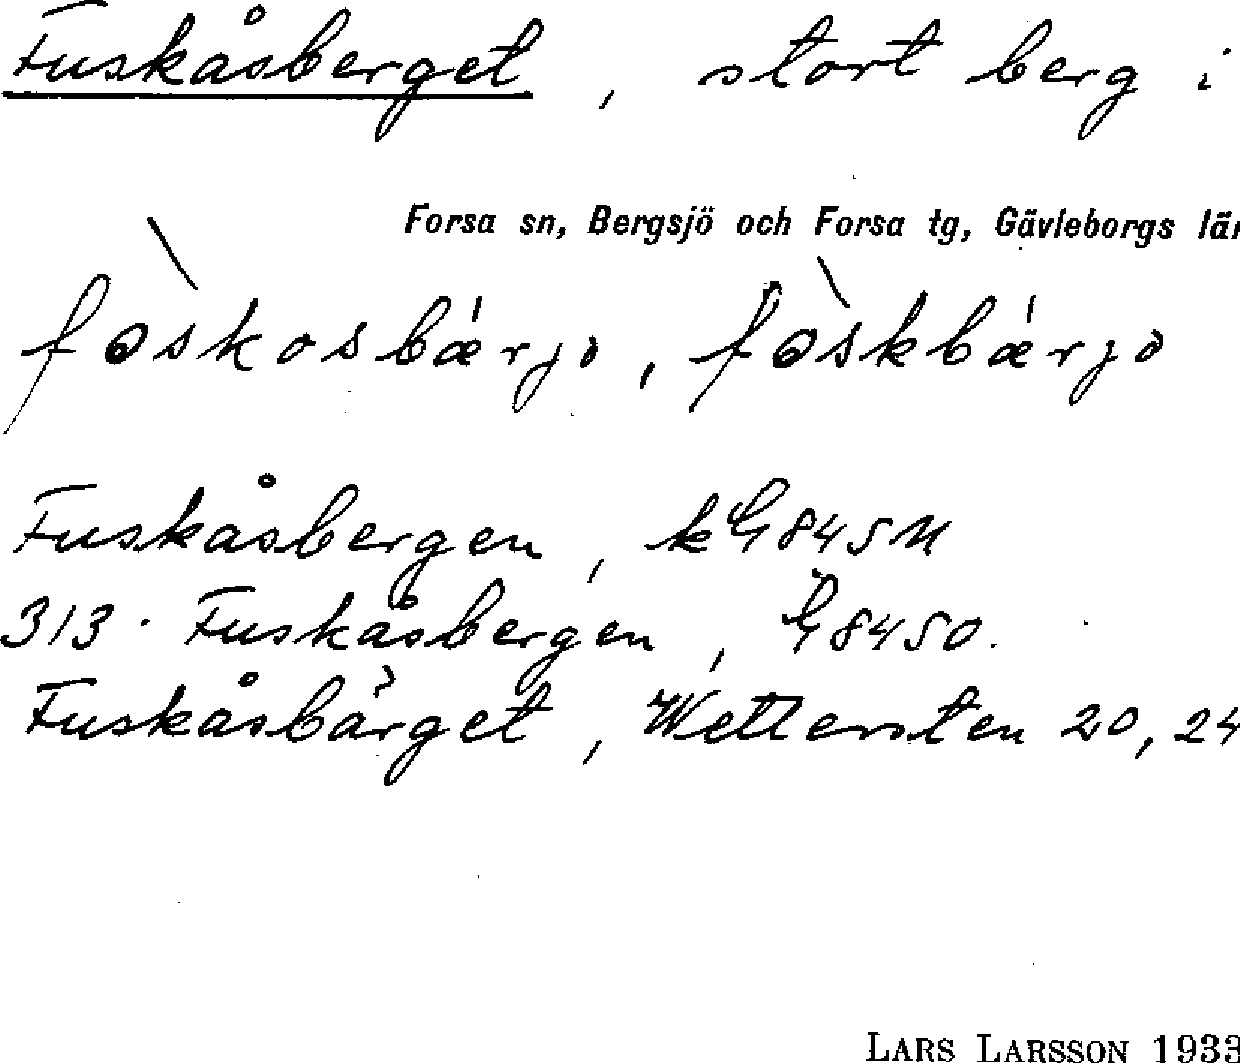 Fuskåsberget, stort berg i
Forsa sn, Bergsjö och Forsa tg, Gävleborgs län
fòskosbǽrjə, fòskbǽrjə
Fuskåsbergen, k G845M
313. Fuskåsbergen, G8450.
Fuskåsbärget, Wettersten 20, 24
LARS LARSSON 1933